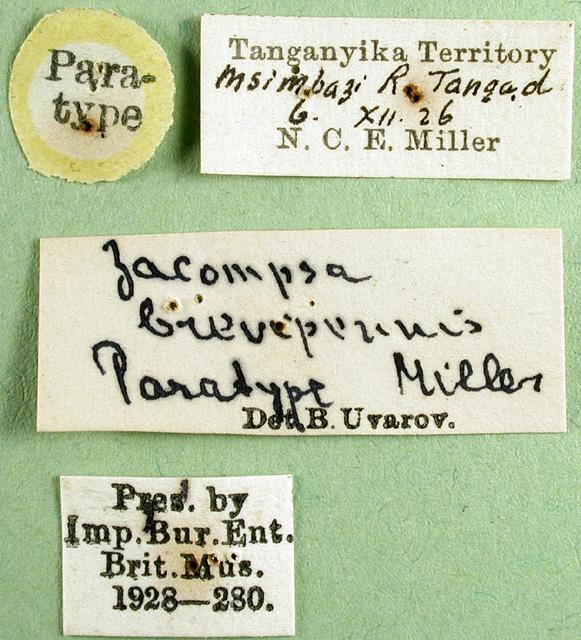 Para-
type
Tanganyika Territory
Msimbazi R. Tanga.d
6. XII. 26
N. C. E. Miller
Zacompsa
brevipennis
Paratype Miller
Det. B. Uvarov.
Pres. by
Imp. Bur. Ent.
Brit. Mus.
1928—280.